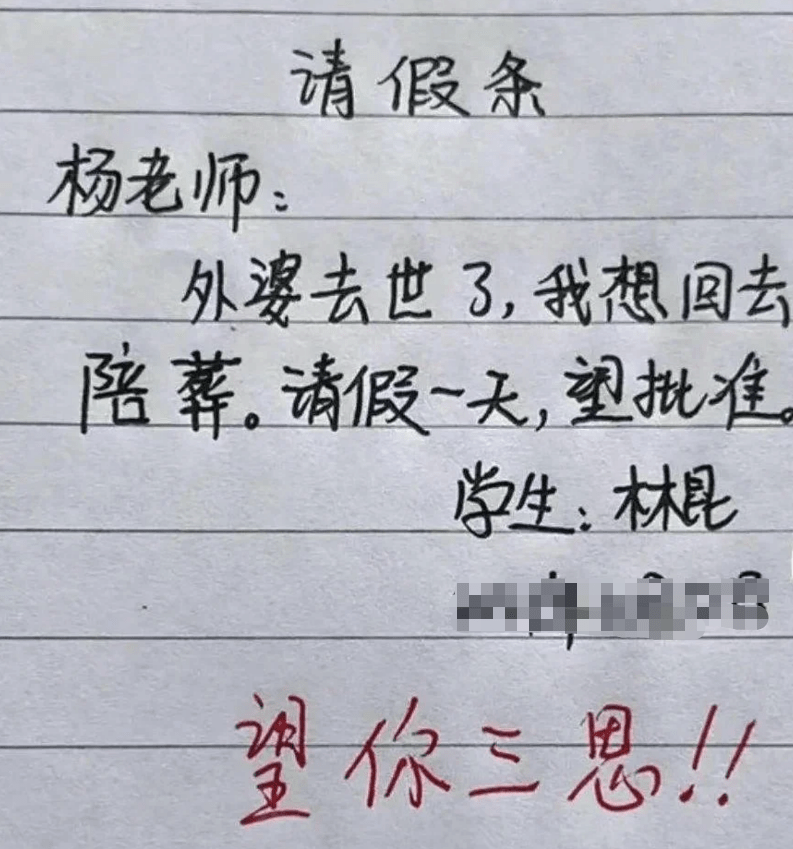 请假条
杨老师:
外婆去世了,我想回去
陪葬。请假一天,望批准。
学生:林昆
望你三思!!